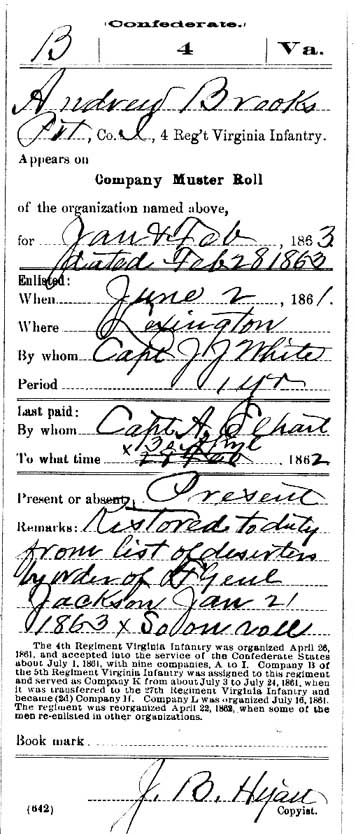 Confederate.
B 4 Va.
Andrew Brooks
Pvt, Co. I, 4 Reg't Virginia Infantry.
Appears on
Company Muster Roll
of the organization named above,
for Jan & Feb, 1863.
dated Feb 28 1863
Enlisted:
When June 2, 1861.
Where Lexington
By whom Capt J J White
Period 1 yr
Last paid:
By whom Capt A.
To what time x 1862
Present or absent, Present
Remarks: Restored to duty
from list of deserters
by order of Lt Genl
Jackson Jan 21
1863 x So on roll
The 4th Regiment Virginia Infantry was organized April 26,
1861, and accepted into the service of the Confederate States
about July 1, 1861, with nine companies, A to I. Company B of
the 5th Regiment Virginia Infantry was assigned to this regiment
and served as Company K from about July 3 to July 24, 1861, when
it was transferred to the 27th Regiment Virginia Infantry and
became (2d) Company H. Company L was organized July 16, 1861.
The regiment was reorganized April 22, 1862, when some of the
men re-enlisted in other organizations.
Book mark
J. B.
(642) Copyist.